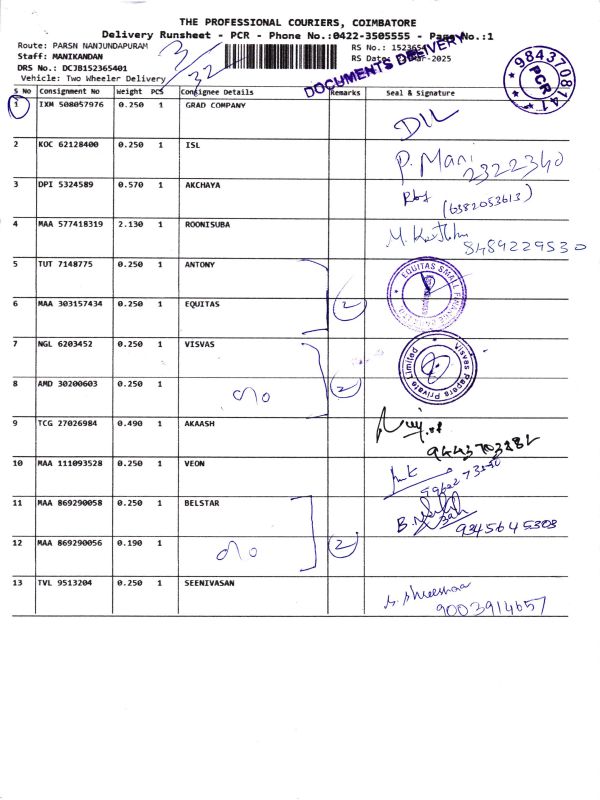 THE PROFESSIONAL COURIERS, COIMBATORE
Delivery Runsheet - PCR - Phone No.:0422-3505555 - Page No.:1
Route: PARSN NANJUNDAPURAM
Staff: MANIKANDAN
DRS No.: DCJB152365401
Vehicle: Two Wheeler Delivery
3/32
RS No.: 1523654
RS Date: -2025
DOCUMENTS DELIVERY
9843708141
PCR
S No Consignment No Weight PCS Consignee Details Remarks Seal & Signature
1 IXM 508057976 0.250 1 GRAD COMPANY DIL
2 KOC 62128400 0.250 1 ISL P. Mani 2322340
3 DPI 5324589 0.570 1 AKCHAYA (6382053613)
4 MAA 577418319 2.130 1 ROONISUBA 8489229530
5 TUT 7148775 0.250 1 ANTONY
6 MAA 303157434 0.250 1 EQUITAS 2 EQUITAS SMALL FINANCE
7 NGL 6203452 0.250 1 VISVAS Visvas Papers Private Limited
8 AMD 30200603 0.250 1 2
9 TCG 27026984 0.490 1 AKAASH
10 MAA 111093528 0.250 1 VEON
11 MAA 869290058 0.250 1 BELSTAR 9345645303
12 MAA 869290056 0.190 1 2
13 TVL 9513204 0.250 1 SEENIVASAN 9003914657